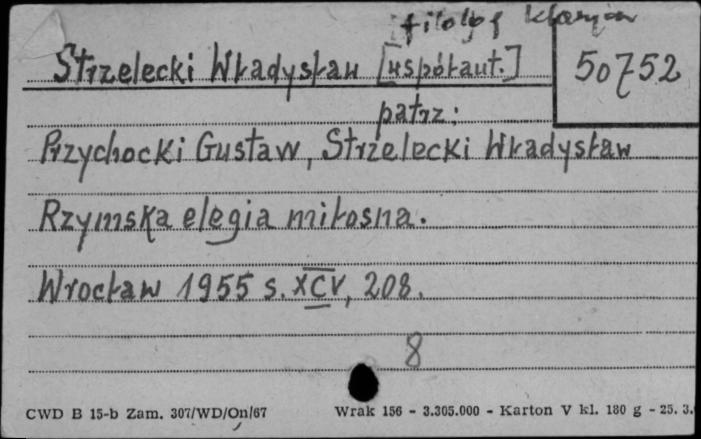 filolog klasycz
Strzelecki Władysław [współaut.]
50752
patrz:
Przychocki Gustaw, Strzelecki Władysław
Rzymska elegia miłosna.
Wrocław 1955 s. XCV, 208.
8
CWD B 15-b Zam. 307/WD/On/67
Wrak 156 - 3.305.000 - Karton V kl. 180 g - 25. 3.